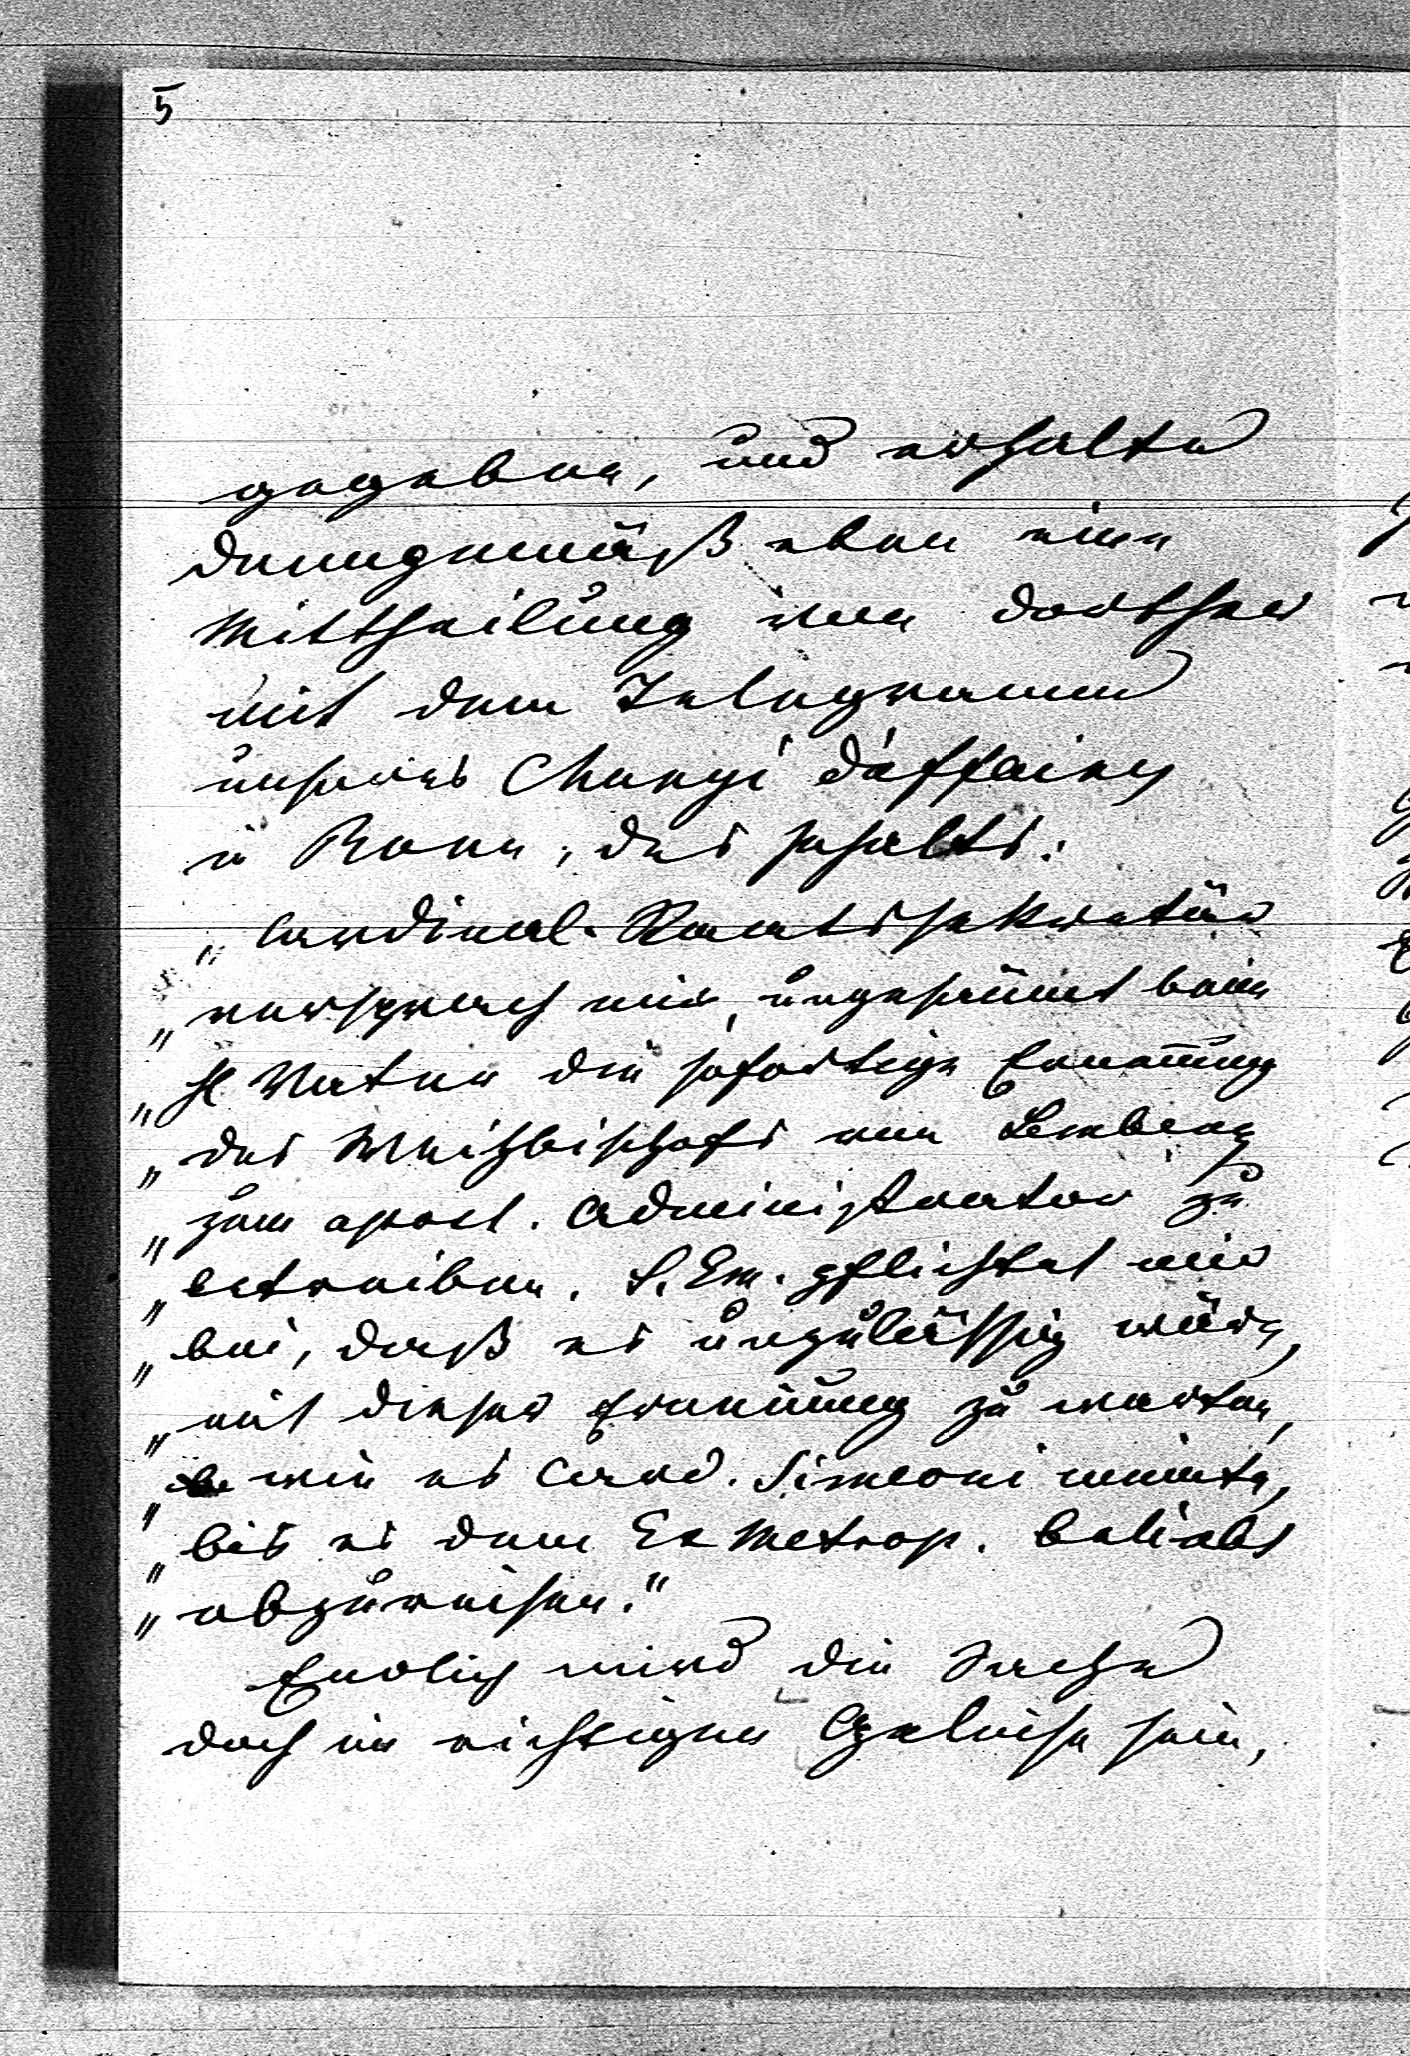 5
gegeben, und erhalte
demgemäß eben eine
Mittheilung von dorther
mit dem Telegramm
unseres Chargé d'affaires
in Rom, des Inhalts:
„Cardinal-Staatssekretär
„versprach mir, ungesäumt beim
„hl. Vater die sofortige Ernennung
„des Weihbischofs von Lemberg
„zum apost. Administrator zu
„betreiben. S. Em. pflichtet mir
„bei, daß es unzulässig wäre,
„mit dieser Ernennung zu warten,
„wie es Card. Simeoni meinte,
„bis es dem Ex Metrop. beliebt
„abzureisen."
Endlich wird die Sache
doch im richtigen Geleise sein,